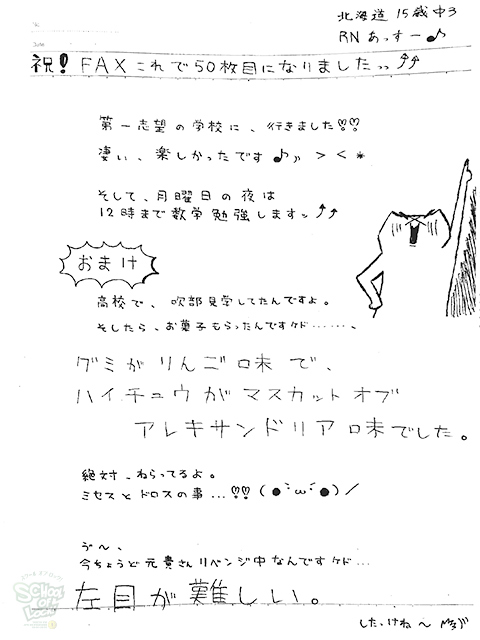 北海道 15歳 中3
RN あっすー♪
祝！FAXこれで50枚目になりましたっっ↑↑
第一志望の学校に、行きました♡♡
凄い、楽しかったです♪)) ＞＜*
そして、月曜日の夜は
12時まで数学勉強しますッ↑↑
おまけ
高校で、吹部見学してたんですよ。
そしたら、お菓子もらったんですケド……、
グミがりんご味で、
ハイチュウがマスカットオブ
アレキサンドリア味でした。
絶対、ねらってるよ。
ミセスとドロスの事…♡♡(●´ω`●)／
う〜、
今ちょうど元貴さんリベンジ中なんですケド…
左目が難しい。
SCHOOL OF LOCK!
したっけね〜